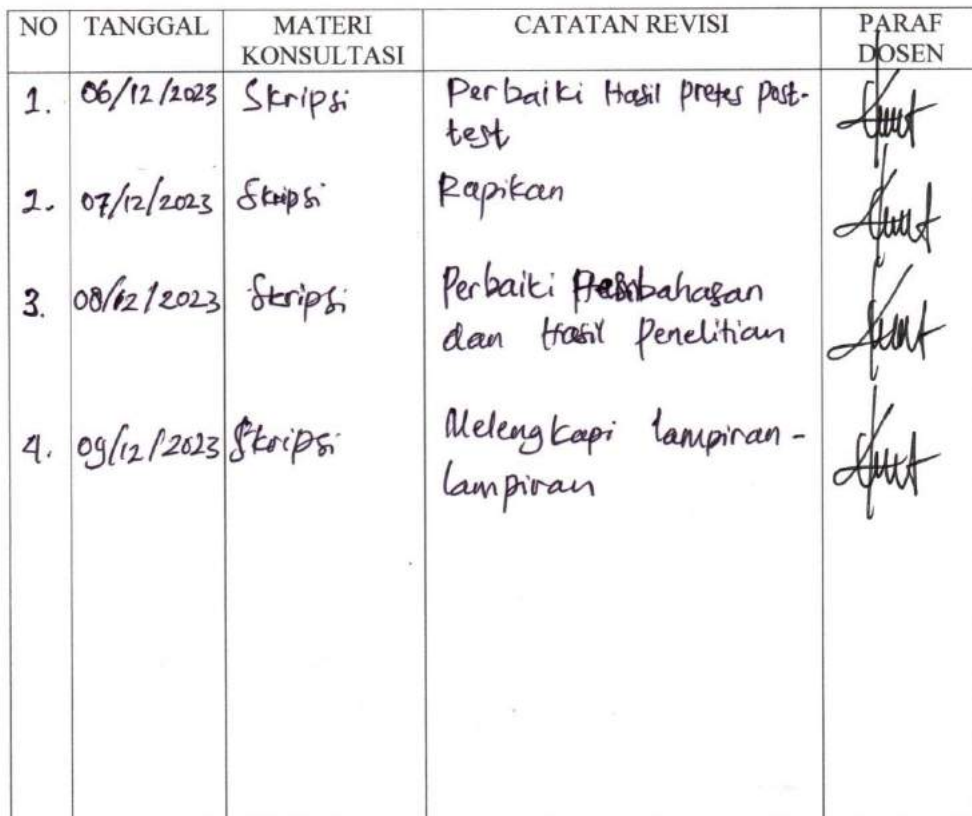 NO TANGGAL MATERI KONSULTASI CATATAN REVISI PARAF DOSEN
1. 06/12/2023 Skripsi Perbaiki Hasil pretes post-
test
2. 07/12/2023 Skripsi Rapikan
3. 08/12/2023 Skripsi Perbaiki Pembahasan
dan Hasil Penelitian
4. 09/12/2023 Skripsi Melengkapi lampiran-
lampiran